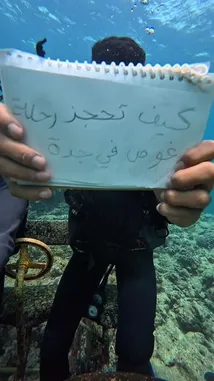 كيف تحجز رحلة
غوص في جدة